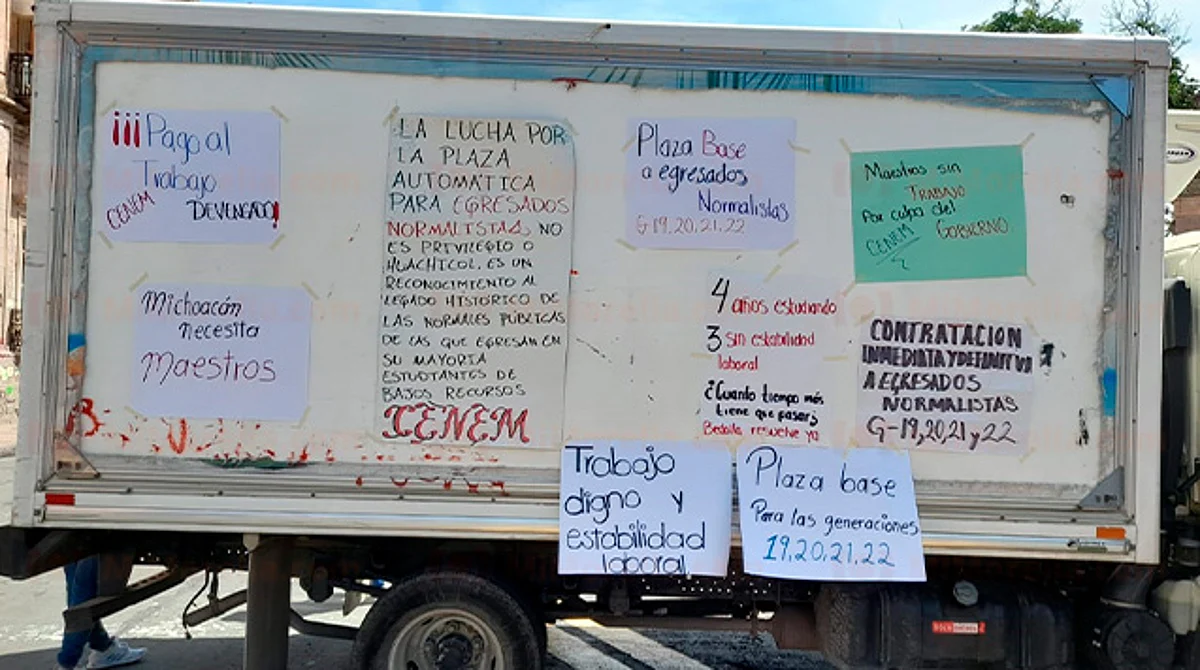 ¡¡¡Pago al
Trabajo
CENEM DEVENGADO!
Michoacán
necesita
Maestros
LA LUCHA POR
LA PLAZA
AUTOMÁTICA
PARA EGRESADOS
NORMALISTAS, NO
ES PRIVILEGIO O
HUACHICOL, ES UN
RECONOCIMIENTO AL
LEGADO HISTÓRICO DE
LAS NORMALES PÚBLICAS
DE LAS QUE EGRESAN EN
SU MAYORIA
ESTUDIANTES DE
BAJOS RECURSOS
CENEM
Plaza Base
a egresados
Normalistas
G-19,20,21,22
Maestros sin
TRABAJO
Por culpa del
GOBIERNO.
CENEM
4 años estudiando
3 sin estabilidad
laboral
¿Cuanto tiempo más
tiene que pasar?
Bedolla resuelve ya
CONTRATACION
INMEDIATA Y DEFINITIVA
A EGRESADOS
NORMALISTAS
G-19,20,21 y 22
Trabajo
digno y
estabilidad
laboral.
Plaza base
Para las generaciones
19,20,21,22